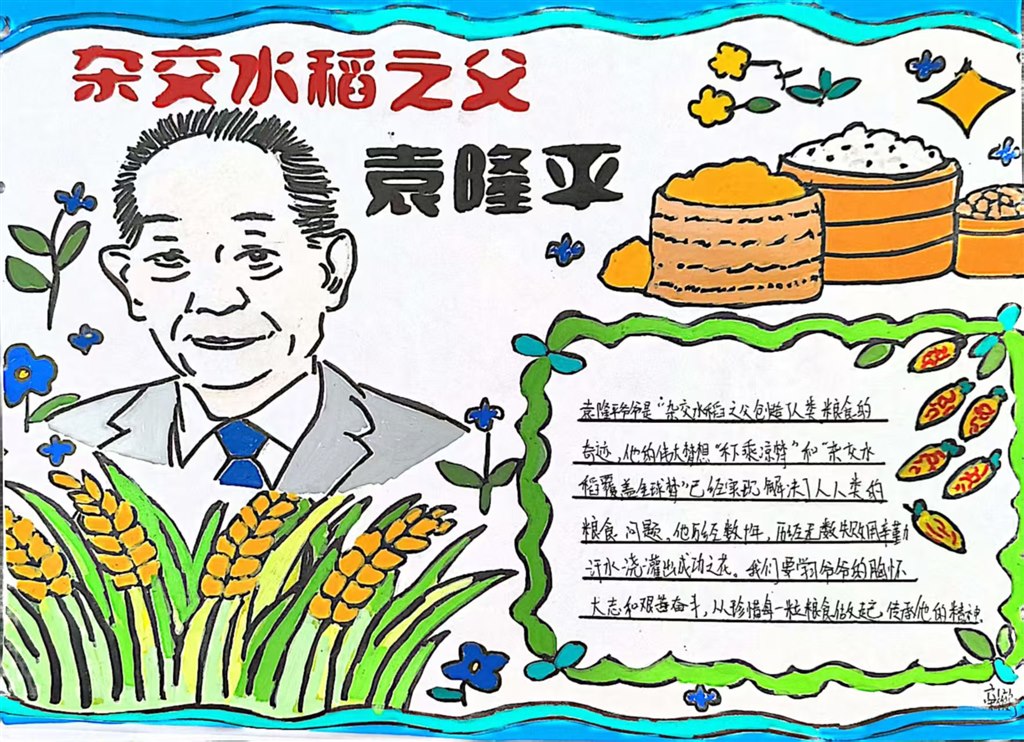 杂交水稻之父
袁隆平
袁隆平爷爷是“杂交水稻之父创造了人类粮食的
奇迹，他的伟大梦想“禾下乘凉梦”和“杂交水
稻覆盖全球梦”已经实现解决了人人类的
粮食问题。他历经数十年，历经无数失败用辛勤
汗水浇灌出成功之花。我们要学习爷爷的胸怀
大志和艰苦奋斗，从珍惜每一粒粮食做起，传承他的精神.